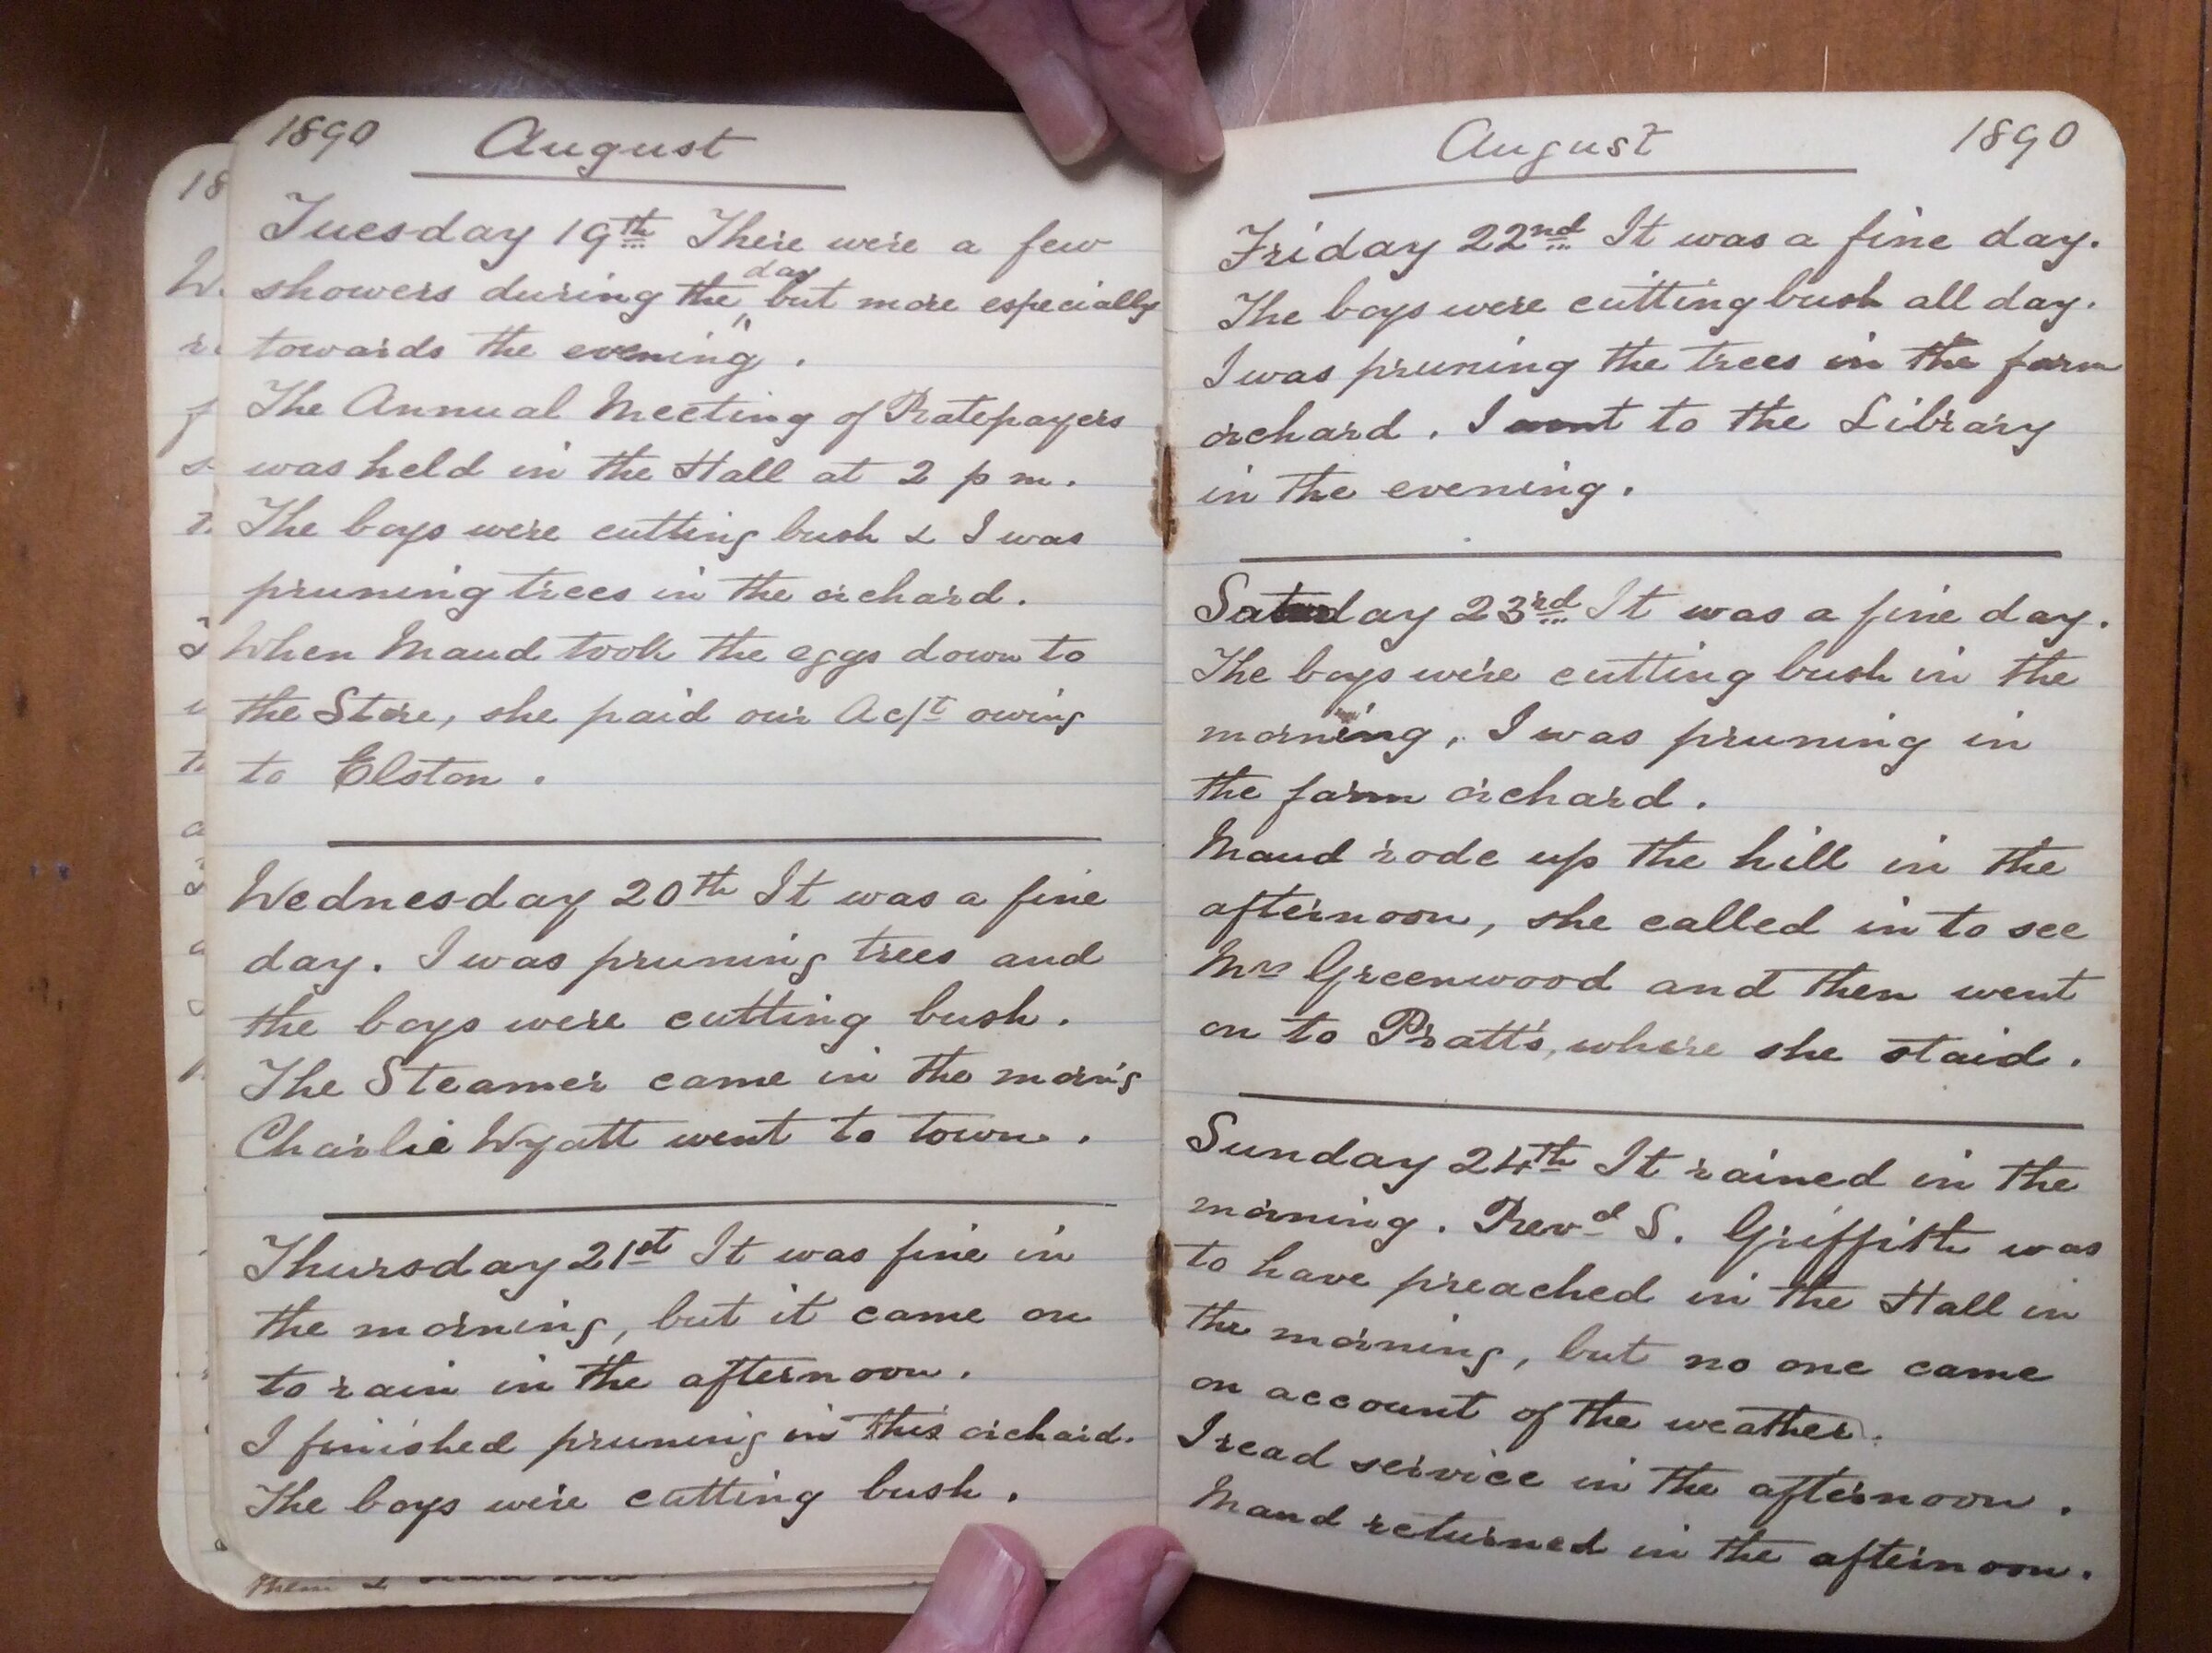 1890 August
Tuesday 19th There were a few
showers during the day but more especially
towards the evening.
The Annual Meeting of Ratepayers
was held in the Hall at 2 p m.
The boys were cutting bush & I was
pruning trees in the orchard.
When Maud took the eggs down to
the Store, she paid our Ac/t owing
to Elston.
Wednesday 20th It was a fine
day. I was pruning trees and
the boys were cutting bush.
The Steamer came in the morn'g
Charlie Wyatt went to town.
Thursday 21st It was fine in
the morning, but it came on
to rain in the afternoon.
I finished pruning in this orchard.
The boys were cutting bush.
August 1890
Friday 22nd It was a fine day.
The boys were cutting bush all day.
I was pruning the trees in the farm
orchard. I went to the Library
in the evening.
Saturday 23rd It was a fine day.
The boys were cutting bush in the
morning, I was pruning in
the farm orchard.
Maud rode up the hill in the
afternoon, she called in to see
Mrs Greenwood and then went
on to Pratt's, where she staid.
Sunday 24th It rained in the
morning. Revd S. Griffith was
to have preached in the Hall in
the morning, but no one came
on account of the weather.
I read service in the afternoon.
Maud returned in the afternoon.